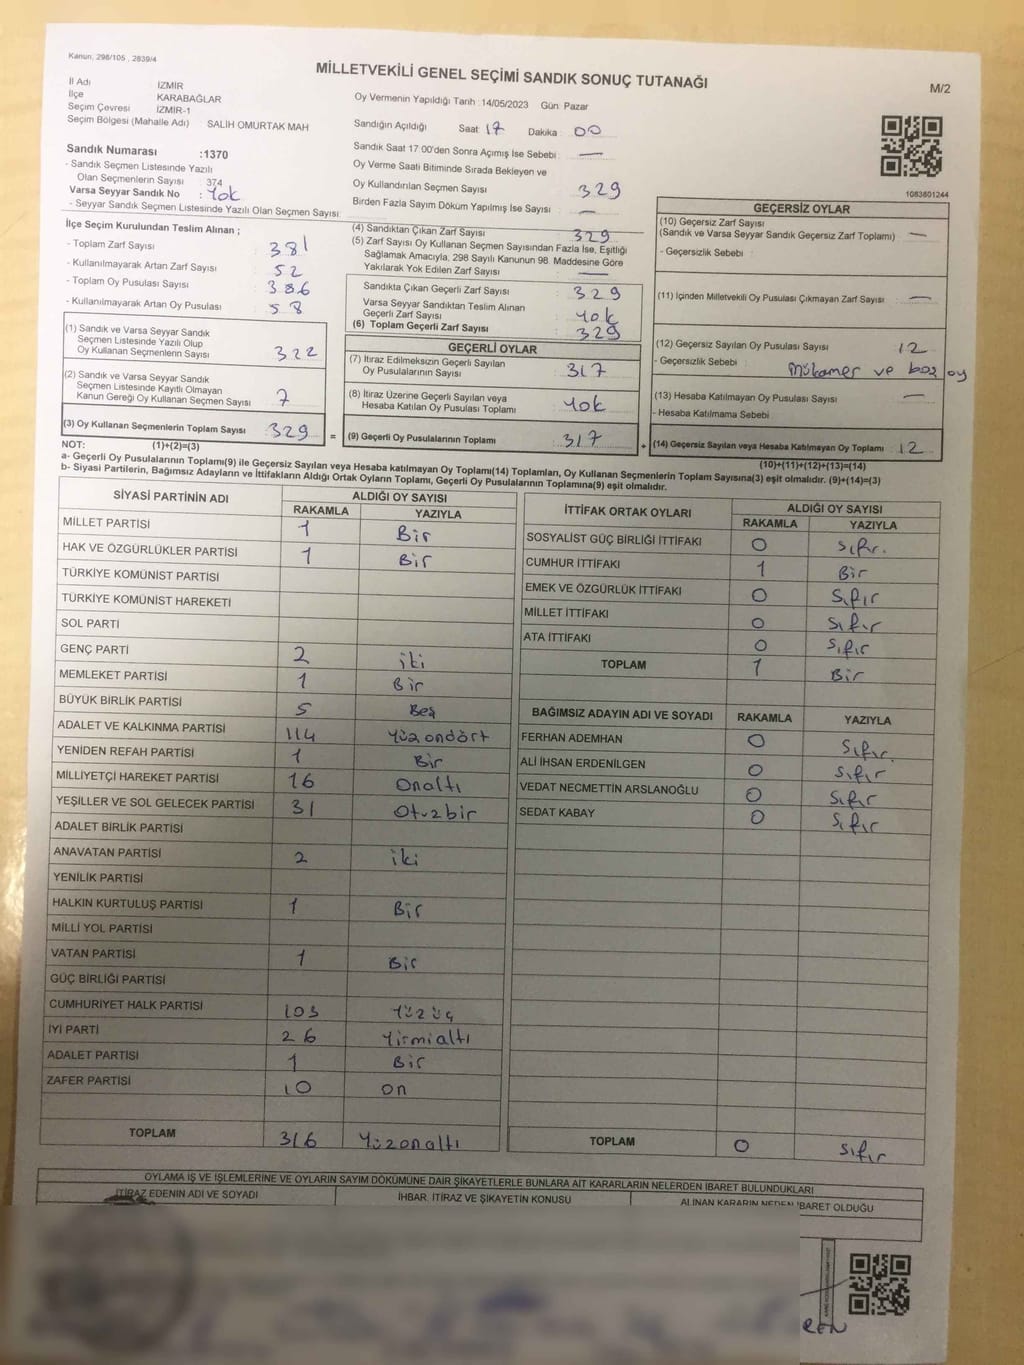 Kanun, 298/105 , 2839/4
MİLLETVEKİLİ GENEL SEÇİMİ SANDIK SONUÇ TUTANAĞI
M/2
İl Adı İZMİR
İlçe KARABAĞLAR
Seçim Çevresi İZMİR-1
Seçim Bölgesi (Mahalle Adı) SALİH OMURTAK MAH
Oy Vermenin Yapıldığı Tarih :14/05/2023 Gün: Pazar
Sandığın Açıldığı Saat: 17 Dakika : 00
Sandık Saat 17 00'den Sonra Açımış İse Sebebi : —
Oy Verme Saati Bitiminde Sırada Bekleyen ve
Oy Kullandırılan Seçmen Sayısı 329
Birden Fazla Sayım Döküm Yapılmış İse Sayısı : —
1083801244
Sandık Numarası :1370
- Sandık Seçmen Listesinde Yazılı
Olan Seçmenlerin Sayısı : 374
Varsa Seyyar Sandık No : Yok
- Seyyar Sandık Seçmen Listesinde Yazılı Olan Seçmen Sayısı:
İlçe Seçim Kurulundan Teslim Alınan ;
- Toplam Zarf Sayısı : 381
- Kullanılmayarak Artan Zarf Sayısı : 52
- Toplam Oy Pusulası Sayısı : 386
- Kullanılmayarak Artan Oy Pusulası : 58
(1) Sandık ve Varsa Seyyar Sandık
Seçmen Listesinde Yazılı Olup
Oy Kullanan Seçmenlerin Sayısı : 322
(2) Sandık ve Varsa Seyyar Sandık
Seçmen Listesinde Kayıtlı Olmayan
Kanun Gereği Oy Kullanan Seçmen Sayısı : 7
(3) Oy Kullanan Seçmenlerin Toplam Sayısı : 329
(4) Sandıktan Çıkan Zarf Sayısı : 329
(5) Zarf Sayısı Oy Kullanan Seçmen Sayısından Fazla İse, Eşitliği
Sağlamak Amacıyla, 298 Sayılı Kanunun 98. Maddesine Göre
Yakılarak Yok Edilen Zarf Sayısı : —
Sandıkta Çıkan Geçerli Zarf Sayısı : 329
Varsa Seyyar Sandıktan Teslim Alınan
Geçerli Zarf Sayısı : Yok
(6) Toplam Geçerli Zarf Sayısı : 329
GEÇERLİ OYLAR
(7) İtiraz Edilmeksizin Geçerli Sayılan
Oy Pusulalarının Sayısı : 317
(8) İtiraz Üzerine Geçerli Sayılan ve
Hesaba Katılan Oy Pusulası Toplamı : Yok
= (9) Geçerli Oy Pusulalarının Toplamı : 317
GEÇERSİZ OYLAR
(10) Geçersiz Zarf Sayısı
(Sandık ve Varsa Seyyar Sandık Geçersiz Zarf Toplamı) : —
- Geçersizlik Sebebi :
(11) İçinden Milletvekili Oy Pusulası Çıkmayan Zarf Sayısı : —
(12) Geçersiz Sayılan Oy Pusulası Sayısı : 12
- Geçersizlik Sebebi : Mükamer ve boş oy
(13) Hesaba Katılmayan Oy Pusulası Sayısı : —
- Hesaba Katılmama Sebebi :
+ (14) Geçersiz Sayılan veya Hesaba Katılmayan Oy Toplamı : 12
NOT: (1)+(2)=(3)
(10)+(11)+(12)+(13)=(14)
a- Geçerli Oy Pusulalarının Toplamı(9) ile Geçersiz Sayılan veya Hesaba katılmayan Oy Toplamı(14) Toplamları, Oy Kullanan Seçmenlerin Toplam Sayısına(3) eşit olmalıdır. (9)+(14)=(3)
b- Siyasi Partilerin, Bağımsız Adayların ve İttifakların Aldığı Ortak Oyların Toplamı, Geçerli Oy Pusulalarının Toplamına(9) eşit olmalıdır.
SİYASİ PARTİNİN ADI ALDIĞI OY SAYISI
RAKAMLA YAZIYLA
MİLLET PARTİSİ 1 Bir
HAK VE ÖZGÜRLÜKLER PARTİSİ 1 Bir
TÜRKİYE KOMÜNİST PARTİSİ
TÜRKİYE KOMÜNİST HAREKETİ
SOL PARTİ
GENÇ PARTİ 2 iki
MEMLEKET PARTİSİ 1 Bir
BÜYÜK BİRLİK PARTİSİ 5 Beş
ADALET VE KALKINMA PARTİSİ 114 Yüzondört
YENİDEN REFAH PARTİSİ 1 Bir
MİLLİYETÇİ HAREKET PARTİSİ 16 Onaltı
YEŞİLLER VE SOL GELECEK PARTİSİ 31 Otuzbir
ADALET BİRLİK PARTİSİ
ANAVATAN PARTİSİ 2 iki
YENİLİK PARTİSİ
HALKIN KURTULUŞ PARTİSİ 1 Bir
MİLLİ YOL PARTİSİ
VATAN PARTİSİ 1 Bir
GÜÇ BİRLİĞİ PARTİSİ
CUMHURİYET HALK PARTİSİ 103 Yüzüç
İYİ PARTİ 26 Yirmialtı
ADALET PARTİSİ 1 Bir
ZAFER PARTİSİ 10 on
TOPLAM 316 Yüzonaltı
İTTİFAK ORTAK OYLARI ALDIĞI OY SAYISI
RAKAMLA YAZIYLA
SOSYALİST GÜÇ BİRLİĞİ İTTİFAKI 0 Sıfır.
CUMHUR İTTİFAKI 1 Bir
EMEK VE ÖZGÜRLÜK İTTİFAKI 0 Sıfır
MİLLET İTTİFAKI 0 Sıfır
ATA İTTİFAKI 0 Sıfır
TOPLAM 1 Bir
BAĞIMSIZ ADAYIN ADI VE SOYADI RAKAMLA YAZIYLA
FERHAN ADEMHAN 0 Sıfır.
ALİ İHSAN ERDENİLGEN 0 Sıfır
VEDAT NECMETTİN ARSLANOĞLU 0 Sıfır
SEDAT KABAY 0 Sıfır
TOPLAM 0 Sıfır
OYLAMA İŞ VE İŞLEMLERİNE VE OYLARIN SAYIM DÖKÜMÜNE DAİR ŞİKAYETLERLE BUNLARA AİT KARARLARIN NELERDEN İBARET BULUNDUKLARI
İTİRAZ EDENİN ADI VE SOYADI İHBAR. İTİRAZ VE ŞİKAYETİN KONUSU ALINAN KARARIN NEDEN İBARET OLDUĞU
REN